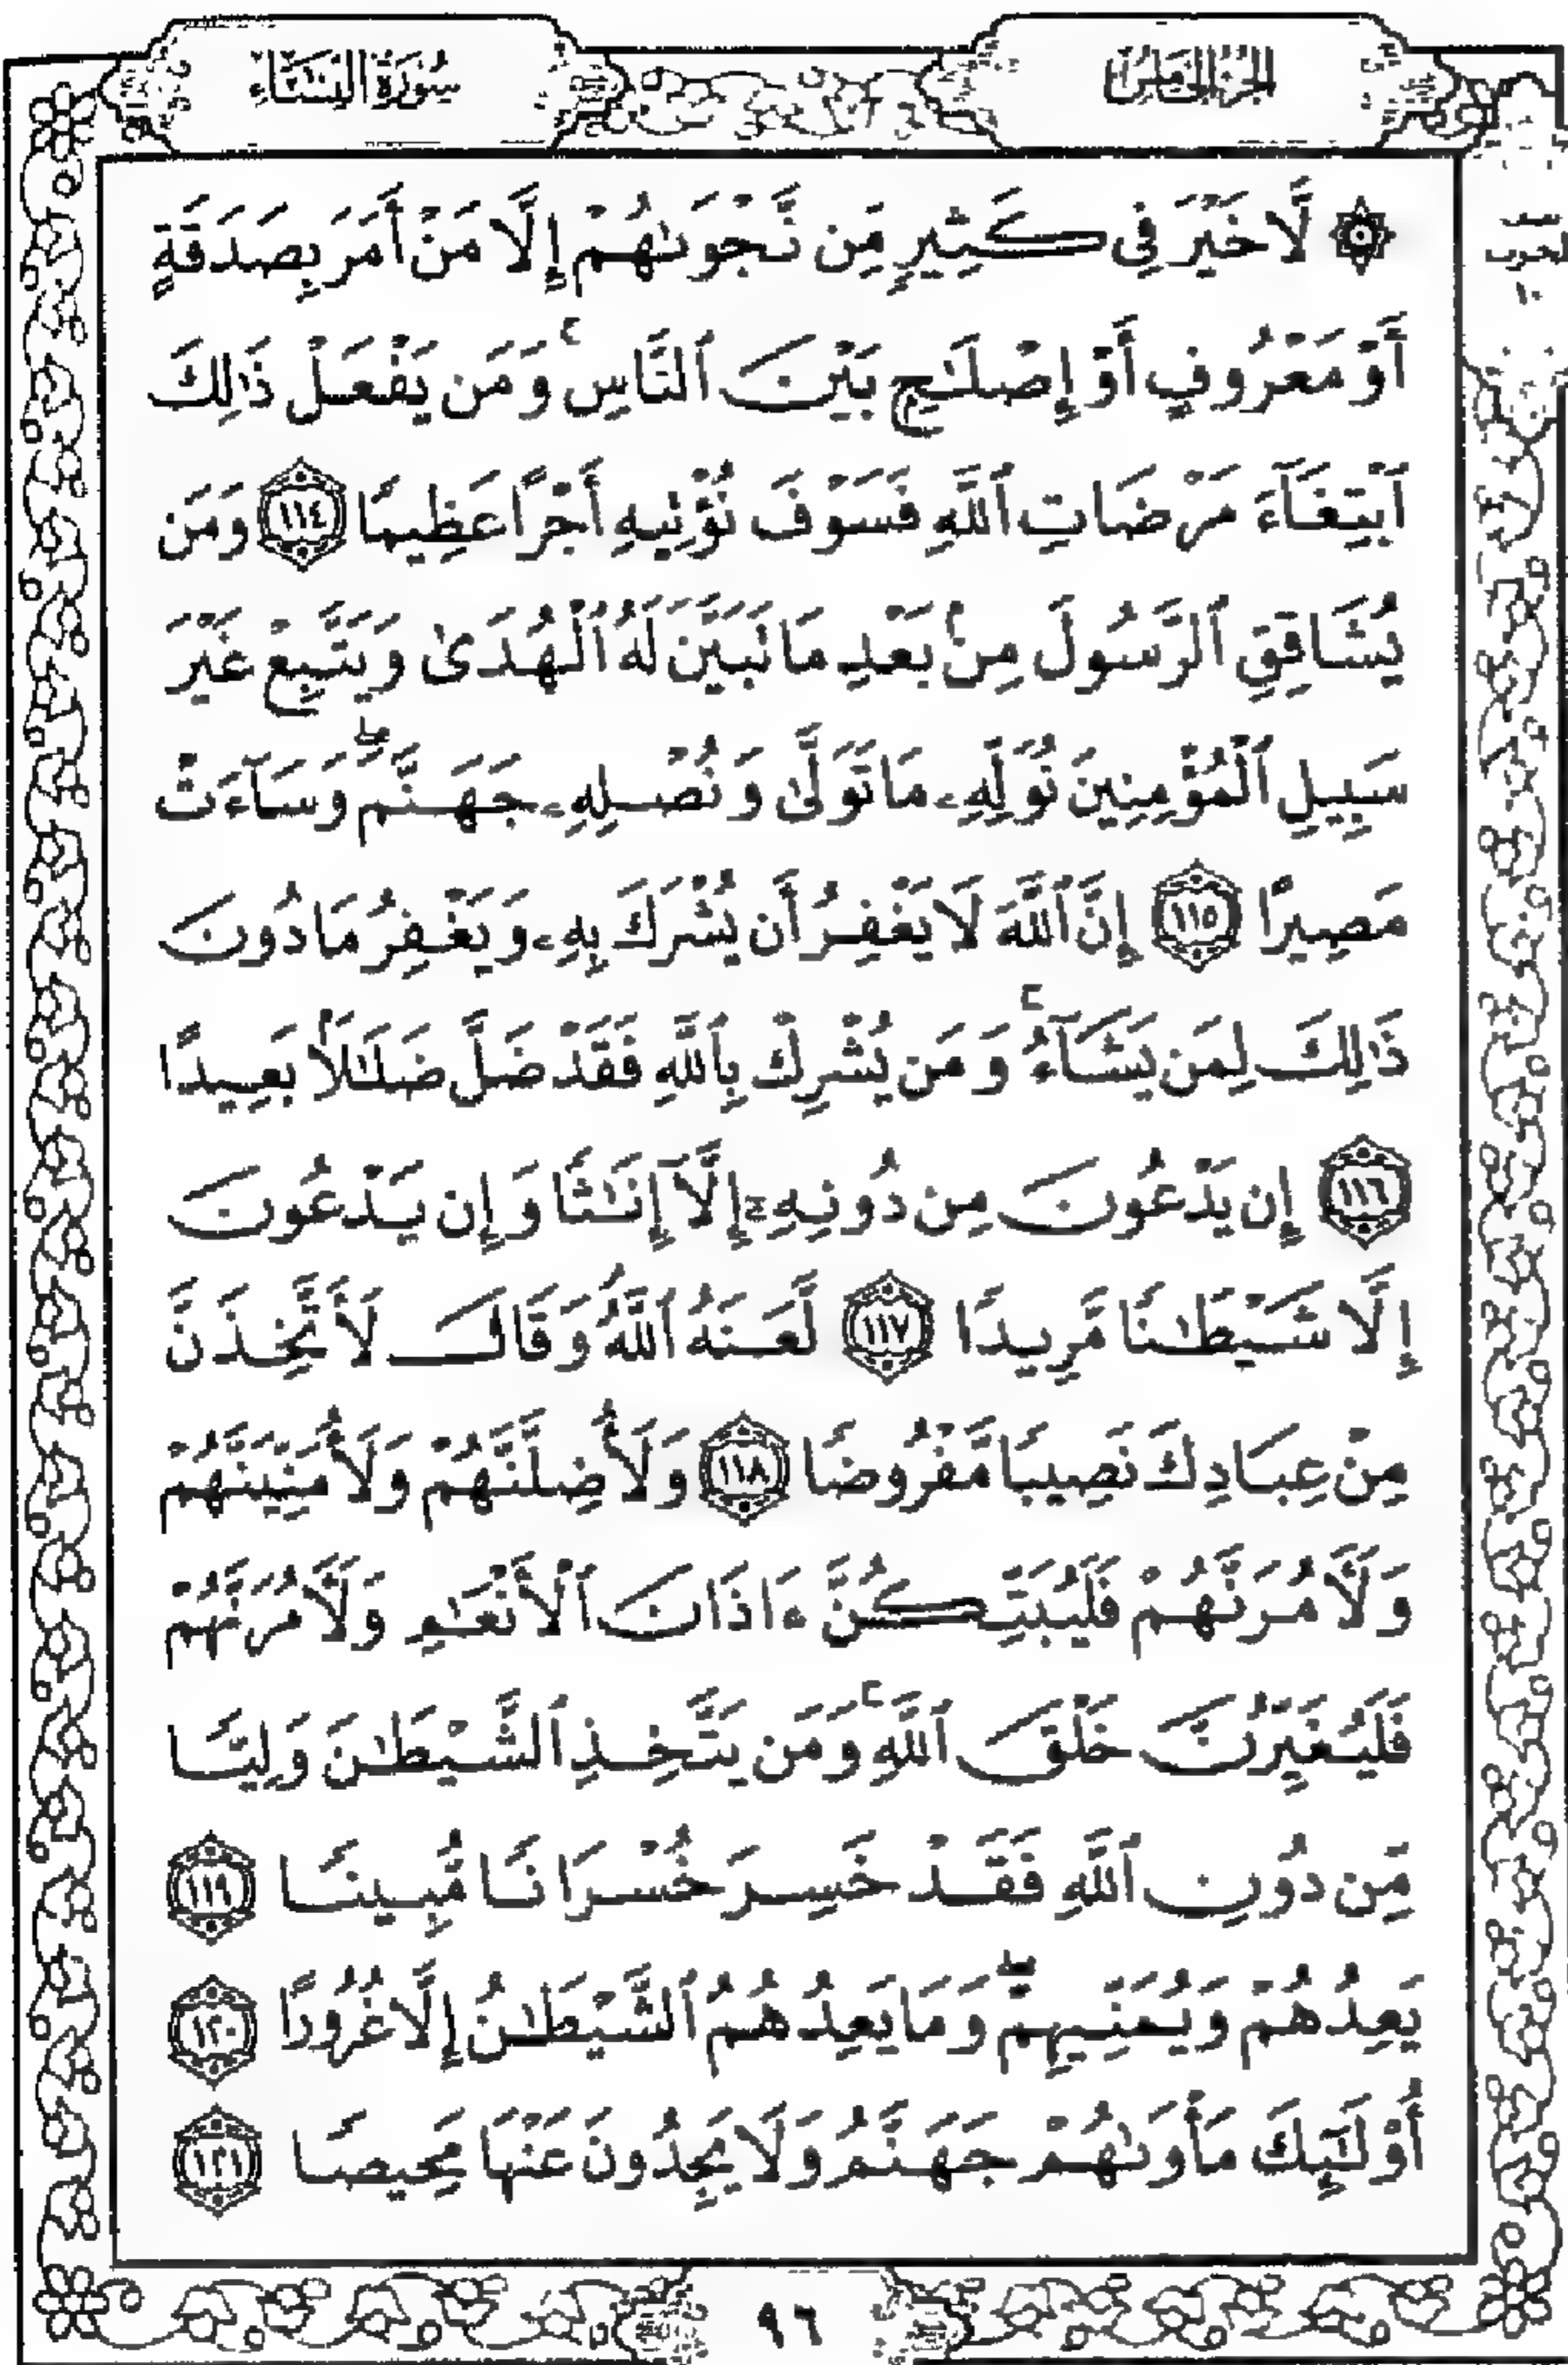 الجزء الخامس
سورة النساء
۞ لَّا خَيْرَ فِى كَثِيرٍ مِّن نَّجْوَىٰهُمْ إِلَّا مَنْ أَمَرَ بِصَدَقَةٍ
أَوْ مَعْرُوفٍ أَوْ إِصْلَـٰحٍۭ بَيْنَ ٱلنَّاسِ ۚ وَمَن يَفْعَلْ ذَٰلِكَ
ٱبْتِغَآءَ مَرْضَاتِ ٱللَّهِ فَسَوْفَ نُؤْتِيهِ أَجْرًا عَظِيمًا ١١٤ وَمَن
يُشَاقِقِ ٱلرَّسُولَ مِنۢ بَعْدِ مَا تَبَيَّنَ لَهُ ٱلْهُدَىٰ وَيَتَّبِعْ غَيْرَ
سَبِيلِ ٱلْمُؤْمِنِينَ نُوَلِّهِۦ مَا تَوَلَّىٰ وَنُصْلِهِۦ جَهَنَّمَ ۖ وَسَآءَتْ
مَصِيرًا ١١٥ إِنَّ ٱللَّهَ لَا يَغْفِرُ أَن يُشْرَكَ بِهِۦ وَيَغْفِرُ مَا دُونَ
ذَٰلِكَ لِمَن يَشَآءُ ۚ وَمَن يُشْرِكْ بِٱللَّهِ فَقَدْ ضَلَّ ضَلَـٰلًۢا بَعِيدًا
١١٦ إِن يَدْعُونَ مِن دُونِهِۦٓ إِلَّآ إِنَـٰثًا وَإِن يَدْعُونَ
إِلَّا شَيْطَـٰنًا مَّرِيدًا ١١٧ لَّعَنَهُ ٱللَّهُ ۘ وَقَالَ لَأَتَّخِذَنَّ
مِنْ عِبَادِكَ نَصِيبًا مَّفْرُوضًا ١١٨ وَلَأُضِلَّنَّهُمْ وَلَأُمَنِّيَنَّهُمْ
وَلَـَٔامُرَنَّهُمْ فَلَيُبَتِّكُنَّ ءَاذَانَ ٱلْأَنْعَـٰمِ وَلَـَٔامُرَنَّهُمْ
فَلَيُغَيِّرُنَّ خَلْقَ ٱللَّهِ ۚ وَمَن يَتَّخِذِ ٱلشَّيْطَـٰنَ وَلِيًّا
مِّن دُونِ ٱللَّهِ فَقَدْ خَسِرَ خُسْرَانًا مُّبِينًا ١١٩
يَعِدُهُمْ وَيُمَنِّيهِمْ ۖ وَمَا يَعِدُهُمُ ٱلشَّيْطَـٰنُ إِلَّا غُرُورًا ١٢٠
أُو۟لَـٰٓئِكَ مَأْوَىٰهُمْ جَهَنَّمُ وَلَا يَجِدُونَ عَنْهَا مَحِيصًا ١٢١
٩٦